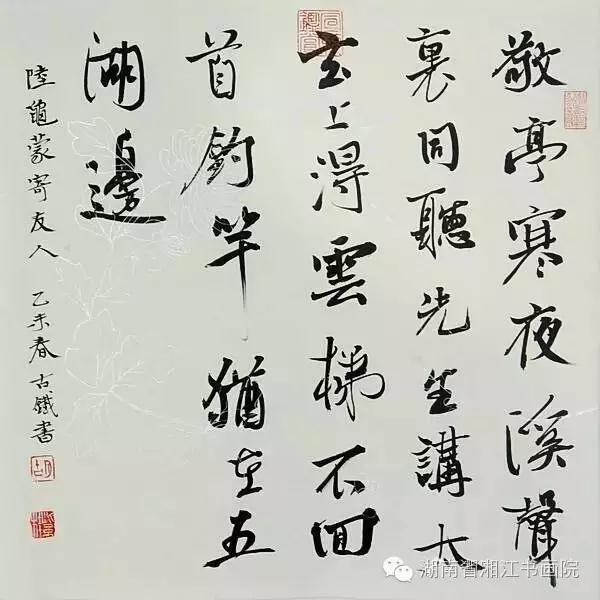 敬亭寒夜溪聲
裏同聽先生講太
玄上得雲梯不回
首釣竿猶在五
湖邊
陸龜蒙寄友人 乙未春古鐵書
湖南省湘江书画院